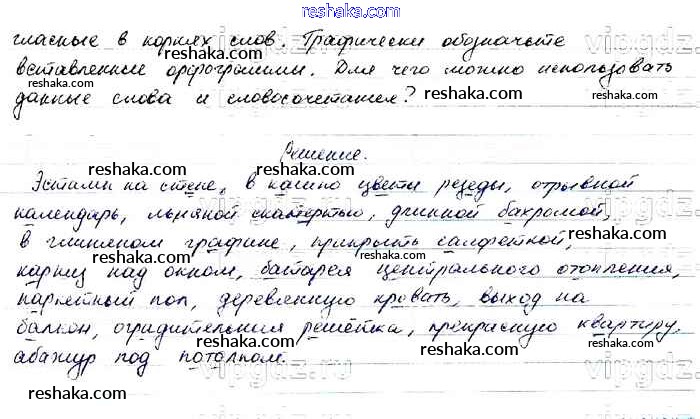 reshaka.com
гласные в корнях слов. Графически обозначьте
вставленные орфограммы. Для чего можно использовать
данные слова и словосочетания?
Решение.
Эстамп на стене, в кашпо цветы резеды, отрывной
календарь, льняной скатертью, длинной бахромой,
в глиняном графине, прикрыть салфеткой,
карниз над окном, батарея центрального отопления,
паркетный пол, деревянную кровать, выход на
балкон, оградительная решётка, прекрасную квартиру,
абажур под потолком.